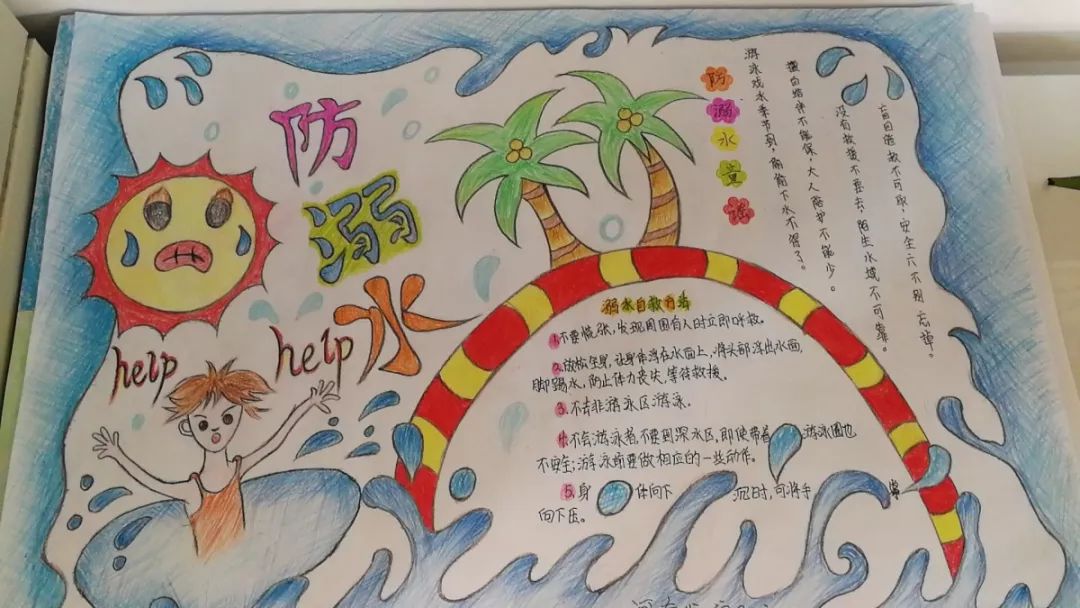 防
溺
水
help
help
防溺水童谣
游泳戏水季节到,
没有救援不要去,陌生水域不可靠。
盲目施救不可取,安全六不别忘掉。
溺水自救方法
1.不要慌张,发现周围有人时立即呼救。
2.放松全身,让身体浮在水面上,将头部浮出水面,
脚踢水,防止体力丧失,等待救援。
3.不去非游泳区游泳。
4.不会游泳者,不要到深水区,即使带着游泳圈也
不安全;游泳前要做相应的一些动作。
5.身体向下沉时,可将手掌
向下压。